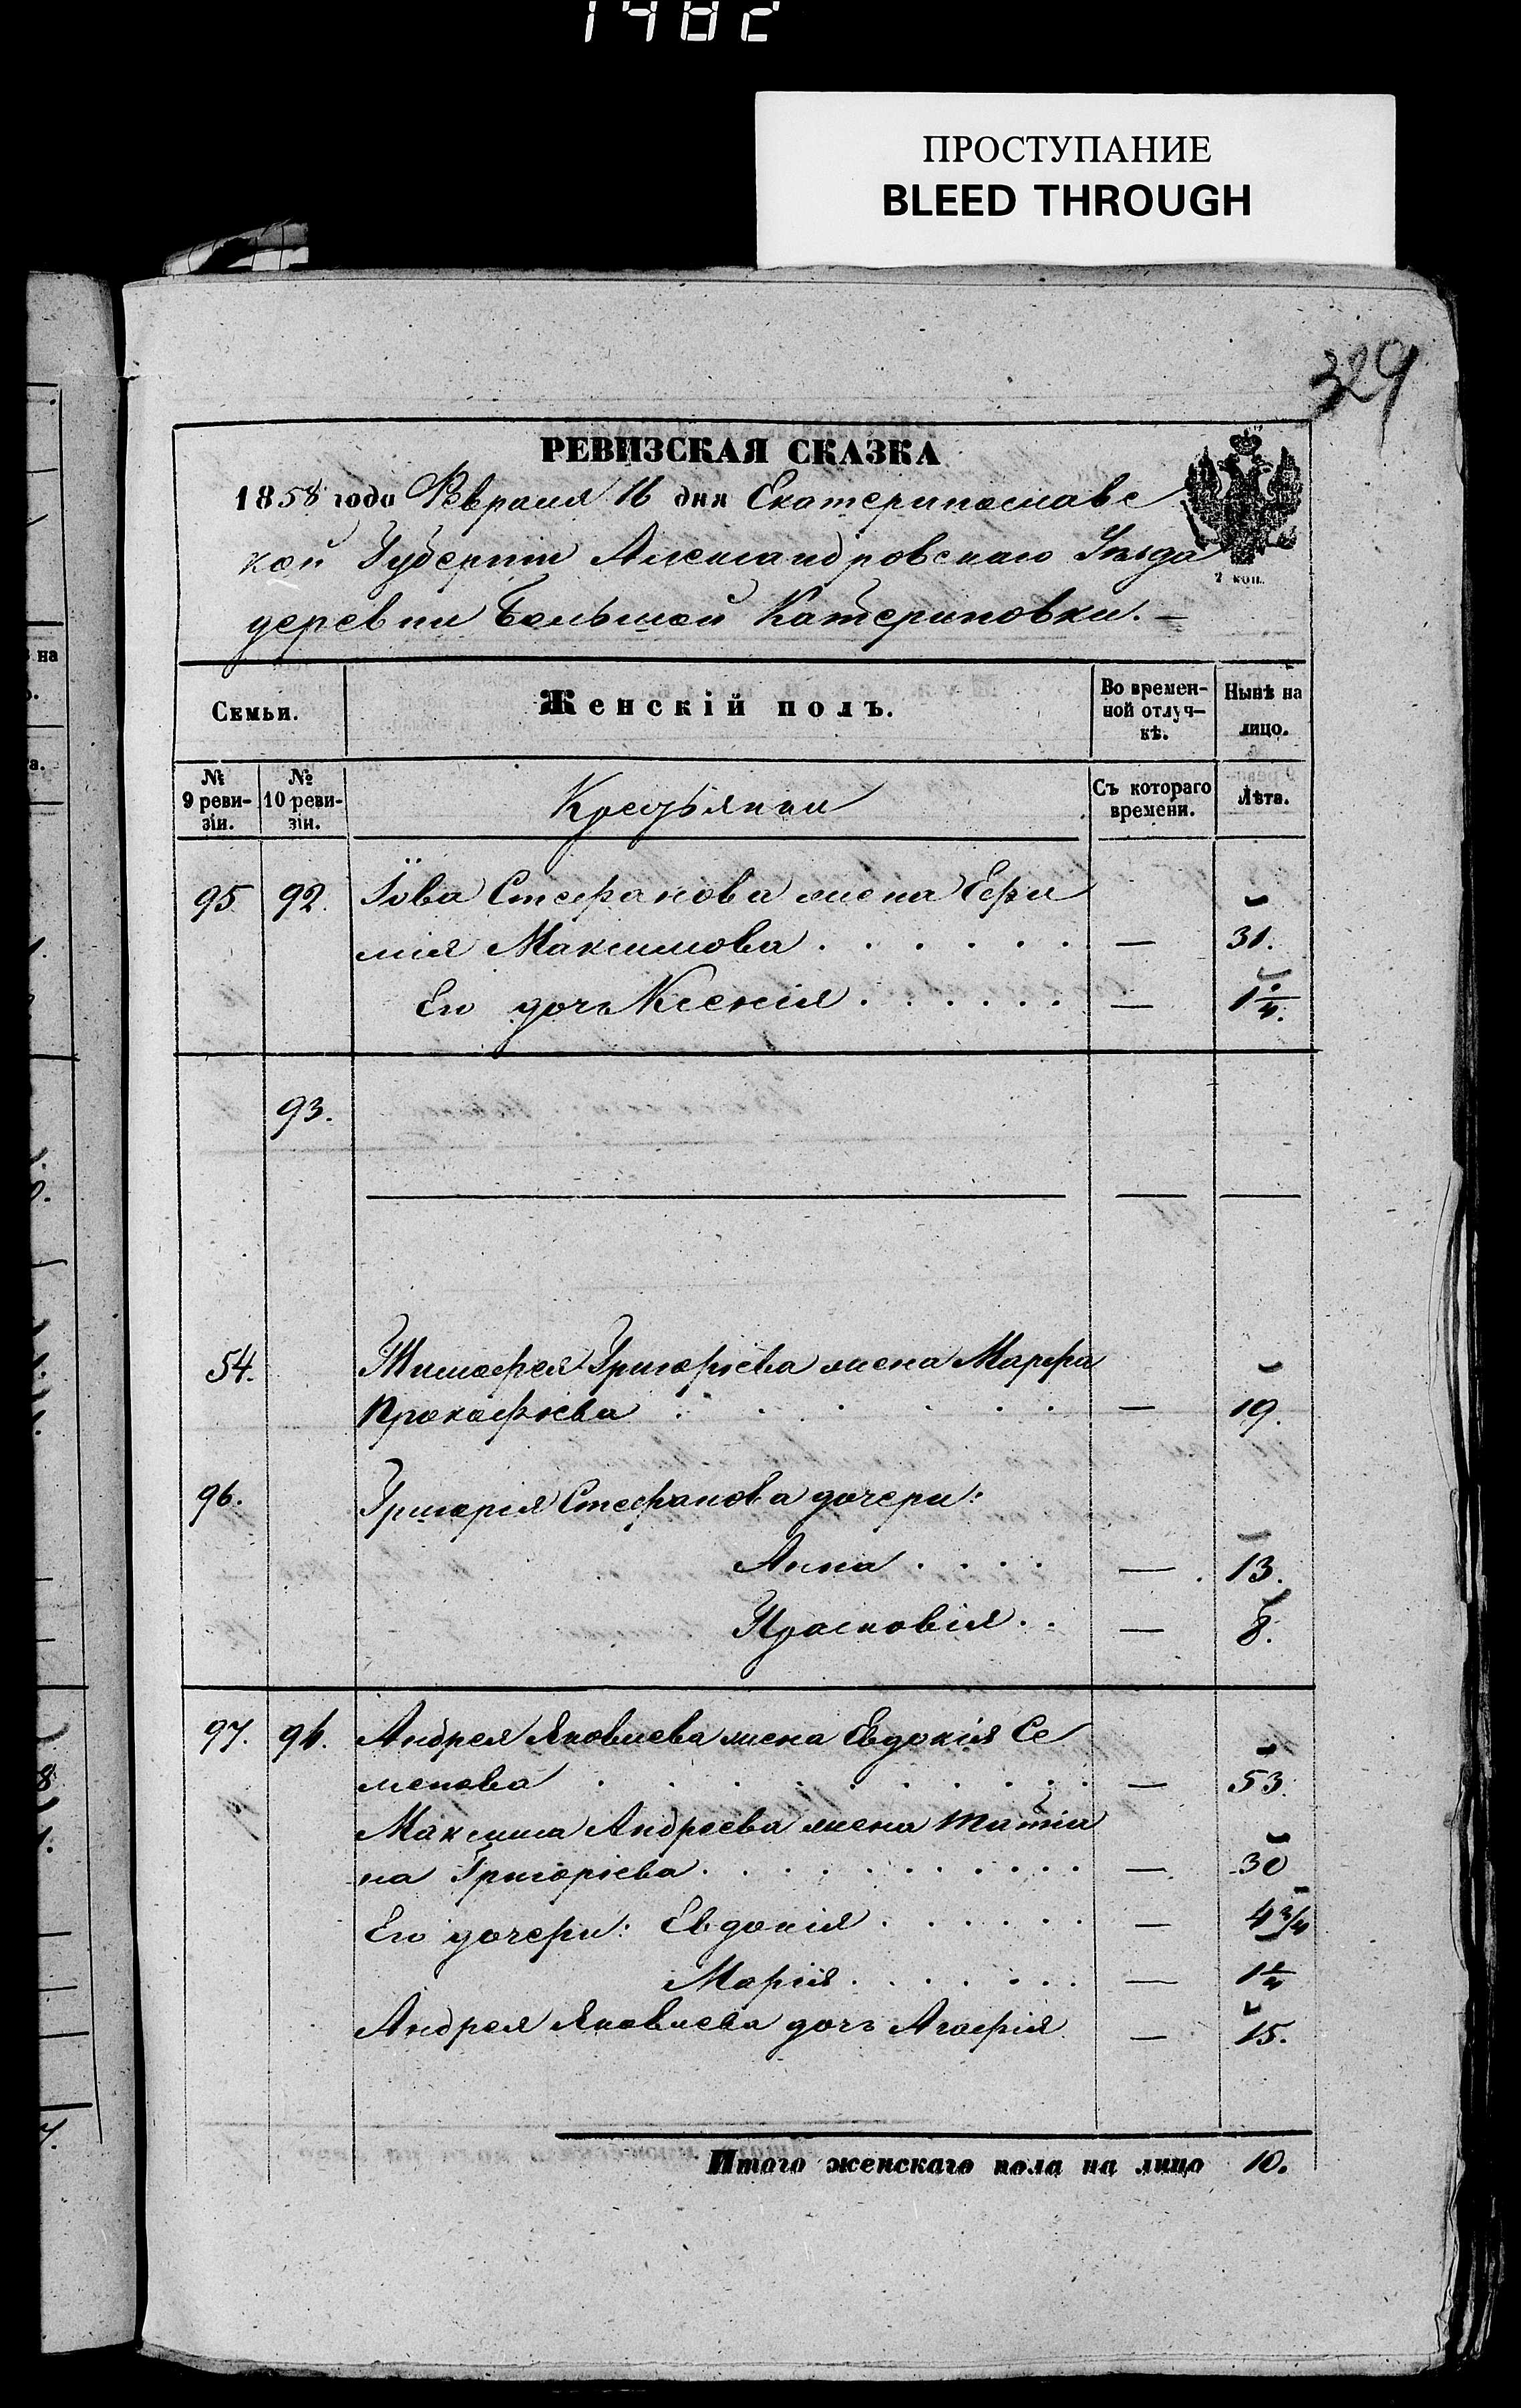 1482
ПРОСТУПАНИЕ
BLEED THROUGH
329
РЕВИЗСКАЯ СКАЗКА
1858 года Февраля 16 дня Екатеринославс
кой Губерніи Александровскаго Уѣзда
2 коп.
деревни Большой Катериновки.
Семьи.
Женскій полъ.
Во времен-
ной отлуч-
кѣ.
Нынѣ на
лицо.
№
9 реви-
зіи.
№
10 реви-
зіи.
Крестьянки
Съ котораго
времени.
Лѣта.
95 92. Іова Стефанова жена Ефи
мія Максимова . . . . . . — 31.
Его дочь Ксенія . . . . . . — 1 1/4.
93.
54. Тимофея Григорьева жена Марфа
Прокофіева . . . . . . — 19.
96. Григорія Стефанова дочери:
Анна . . . . — 13.
Прасковія . . — 8.
97. 94. Андрея Яковлева жена Евдокія Се
менова . . . . . . . . . — 53.
Максима Андреева жена Татіа
на Григоріева . . . . . . . . . . — 30
Его дочери: Евдокія . . . . . . — 4 3/4
Марія . . . . . . — 1 1/4
Андрея Яковлева дочь Агафія — 15.
Итого женскаго пола на лицо 10.